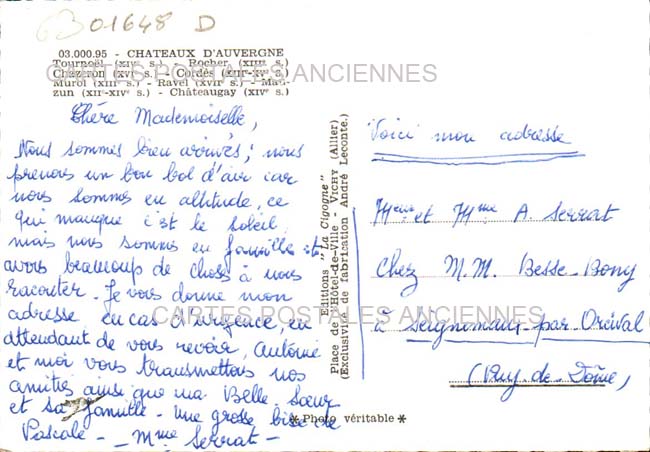 01648 D
03.000.95 - CHATEAUX D'AUVERGNE
Tournoël (XIVe s.) - Rocher (XIIIe s.)
Chazeron (XVIe s.) - Cordès (XIIIe-XVe s.)
Murol (XIIIe s.) - Ravel (XVIIe s.) - Mau-
zun (XIIe-XIVe s.) - Châteaugay (XIVe s.)
CARTES POSTALES ANCIENNES
Chère Mademoiselle,
Nous sommes bien arrivés ; nous
prenons un bon bol d'air car
nous sommes en altitude, ce
qui manque c'est le soleil,
mais nous sommes en famille et
avons beaucoup de choses à nous
raconter. Je vous donne mon
adresse en cas d'urgence, en
attendant de vous revoir, Antoine
et moi vous transmettons nos
amitiés ainsi que ma Belle-Sœur
et sa famille - Une grosse bise de
Pascale - Mme Serrat -
Editions "La Cigogne"
Place de l'Hôtel-de-Ville - VICHY (Allier)
(Exclusivité de fabrication André Leconte.)
Voici mon adresse
Mr et Mme A. Serrat
Chez M.M. Besse-Bony
à -par Orcival
(Puy-de-Dôme)
CARTES POSTALES ANCIENNES
* Photo véritable *